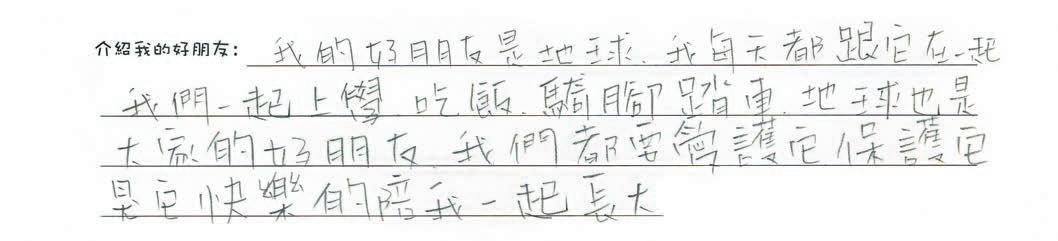 介紹我的好朋友: 我的好朋友是地球.我每天都跟它在一起
我們一起上學.吃飯.騎腳踏車.地球也是
大家的好朋友.我們都要愛護它保護它
是它快樂的陪我一起長大